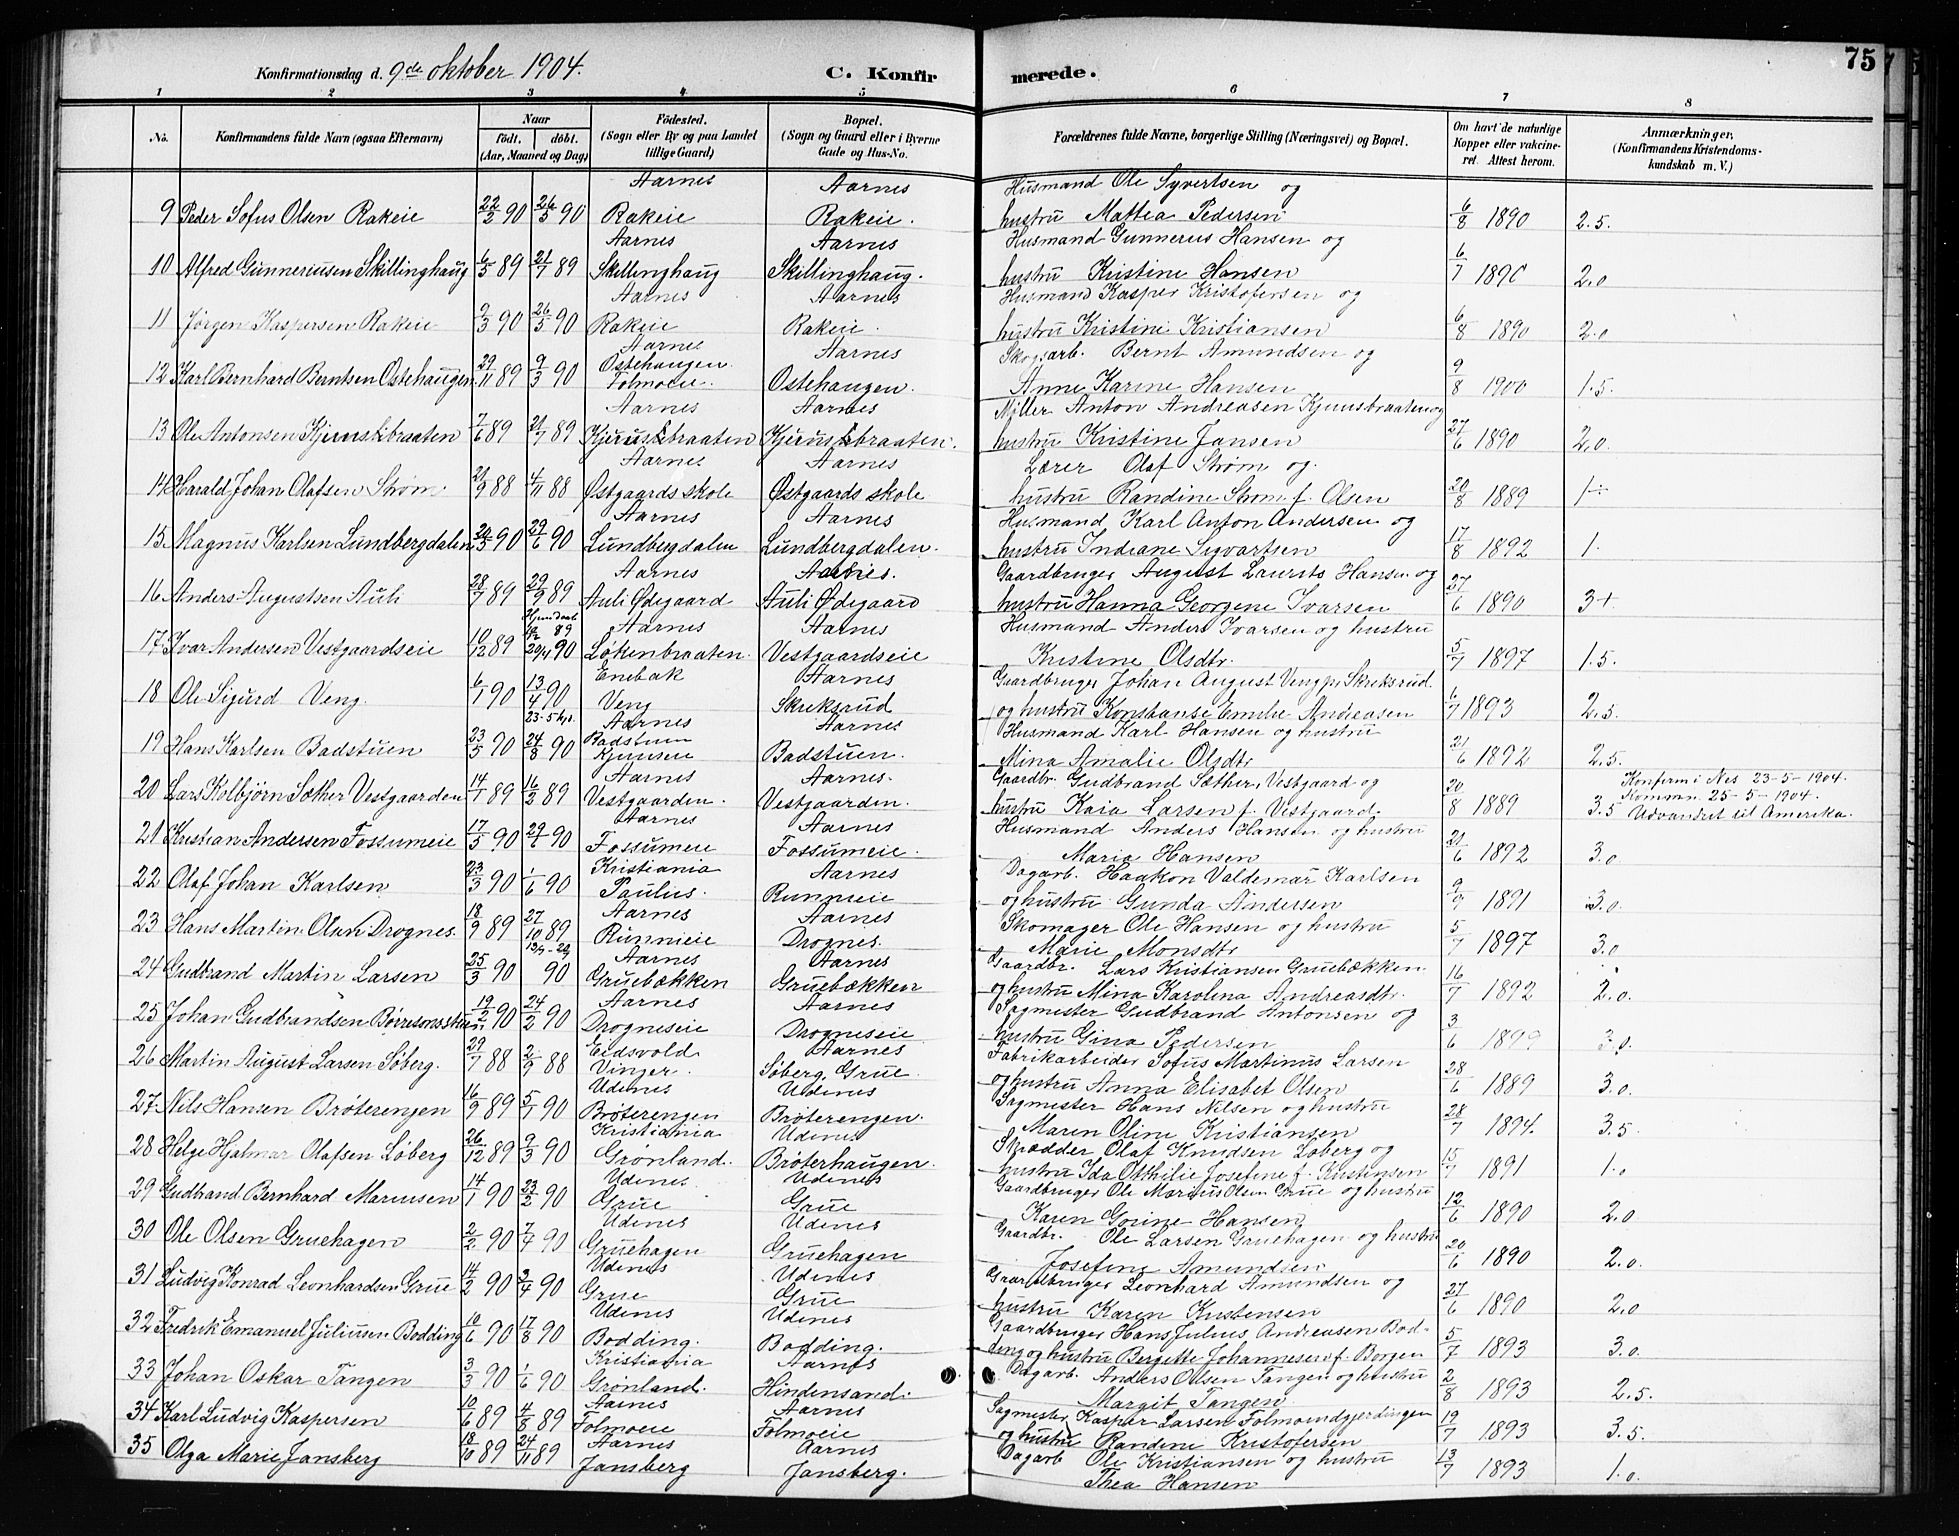 75
Konfirmationsdag d. 9de oktober 1904. C. Konfirmerede.
1 2 3 4 5 6 7 8
No. Konfirmandens fulde Navn (ogsaa Efternavn) Naar født. døbt. (Aar, Maaned og Dag) Fødested. (Sogn eller By og paa Landet tillige Gaard) Bopæl. (Sogn og Gaard eller i Byerne Gade og Hus-No. Forældrenes fulde Navne, borgerlige Stilling (Næringsvei) og Bopæl. Om havt de naturlige Kopper eller vaccineret. Attest herom. Anmærkninger, (Konfirmandens Kristendomskundskab m. V.)
Aarnes Aarnes Husmand Ole Syvertsen og
9 Peder Sofus Olsen Rakeie 22/2 90 26/5 90 Rakeie Rakeie. hustru Mattea Pedersen 6/8 1890 2.5.
Aarnes Aarnes Husmand Gunnerus Hansen og
10 Alfred Gunneriusen Skillinghaug 6/5 89 21/7 89 Skillinghaug Skillinghaug. hustru Kristine Hansen 6/7 1890 2.0
Aarnes Aarnes Husmand Kasper Kristofersen og
11 Jørgen Kaspersen Rakeie 9/3 90 26/5 90 Rakeie Rakeie. hustru Kristine Kristiansen 6/8 1890 2.0
Aarnes Aarnes Skogsarb. Bernt Amundsen og
12 Karl Bernhard Berntsen Ostehaugen. 29/11 89 9/3 90 Ostehaugen. Folmoeie. Ostehaugen. Anne Karine Hansen 9/8 1900 1.5.
Aarnes Aarnes Møller Anton Andreasen Kjuusbraaten og
13 Ole Antonsen Kjeruusbraaten 7/6 89 21/7 89 Kjeruusbraaten Kjeruusbraaten. hustru Kristine Jansen 27/6 1890 2.0.
Aarnes Aarnes Lærer Olaf Strøm og
14 Harald Johan Olafsen Strøm. 21/9 88 4/11 88 Østgaards skole Østgaards skole hustru Randine Strøm f. Olsen 20/8 1889 1÷
Aarnes Aarnes Husmand Karl Anton Andersen og
15 Magnus Karlsen Lundbergdalen 24/5 90 29/6 90 Lundbergdalen Lundbergdalen. hustru Indiane Sigvartsen 17/8 1892 1.
Aarnes Aarnes. Gaardbruger August Laurits Hansen og
16 Anders Augustsen Auli 28/7 89 29/9 89 Auli Ødegaard Auli Ødegaard hustru Hanna Georgene Ivarsen 27/6 1890 3+.
Aarnes Aarnes Husmand Anders Ivarsen og hustru
17 Ivar Andersen Vestgaardseie 10/12 89 20/4 90 Løkenbraaten. Vestgaardseie Kristine Olsdtr. 5/7 1897 1.5.
Enebak Aarnes Gaardbruger Johan August Veng pr Skreksrud.
18 Ole Sigurd Veng. 6/1 90 13/4 90 Veng Skreksrud og hustru Konstanse Emilie Andreasen 6/7 1893 2.5.
Aarnes Aarnes Husmand Karl Hansen og hustru
19 Hans Karlsen Badstuen 23/5 90 24/8 90 Badstuen Kjuuseie Badstuen. Mina Amalie Olsdtr 21/6 1892 2.5.
Aarnes Aarnes. Gaardbr. Gudbrand Sæther, Vestgaard og Konferm i Nes 23-5-1904.
20 Lars Kolbjörn Sæther Vestgaarden 14/1 89 16/2 89 Vestgaarden. Vestgaarden. hustru Kaia Larsen f. Vestgaard. 20/8 1889 3.5 Kommn. 25-5-1904. Udvandret til Amerika.
Aarnes Aarnes Husmand Anders Hansen og hustru
21 Kristian Andersen Fossumeie 17/3 90 27/4 90 Fossumeie Fossumeie. Marie Hansen 21/6 1892 3.0
Kristiania Aarnes Dagarb. Haakon Valdemar Karlsen
22 Olaf Johan Karlsen 23/3 90 1/6 90 Paulus. Runnieie og hustru Gunda Andersen 9/7 1891 3.0.
Aarnes Aarnes Skomager Ole Hansen og hustru
23 Hans Martin Olsen Drognes. 18/9 89 27/10 89 Runnieie Drognes. Marie Monsdtr 5/7 1897 3.0
Aarnes Aarnes Gaardbr. Lars Kristiansen Gruebækken
24 Gudbrand Martin Larsen 25/3 90 90 Gruebækken Gruebækken og hustru Mina Karolina Andreasdtr. 16/7 1892 2.0.
Aarnes Aarnes Sagmester Gudbrand Antonsen og
25 Johan Gudbrandsen 19/2 90 24/2 90 Drogneseie Drogneseie hustru Gina Pedersen 3/6 1899 3.0.
Eidsvold Aarnes Fabrikarbeider Sofus Martinus Larsen
26 Martin August Larsen Søberg. 29/7 88 2/9 88 Vinger. Søberg, Grue. og hustru Anna Elisabet Olsen 28/6 1889 3.0.
Udenes Udenes Sagmester Hans Nilsen og hustru
27 Nils Hansen Brøterengen 16/9 89 5/1 90 Brøterengen Brøterengen. Maren Oline Kristiansen 28/7 1894. 3.5.
Kristiania Udenes Skrædder Olaf Knudsen Løberg og
28 Helge Hjalmar Olafsen Løberg 26/12 89 9/3 90 Grønland. Brøterhaugen. hustru Ida Otthilie Josefine f. Kristensen 15/7 1891 1.0
Udenes Udenes Gaardbruger Ole Marius Olsen Grue og hustru
29 Gudbrand Bernhard Mariusen 14/1 90 23/2 90 Grue Grue Karen Gorine Hansen 12/6 1890 2.0
Udenes Udenes Gaardbr. Ole Larsen Gruehagen og hustru
30 Ole Olsen Gruehagen 2/2 90 7/4 90 Gruehagen Gruehagen Josefine Amundsen 20/6 1890 2.0.
Udenes Udenes Gaardbruger Leonhard Amundsen og
31 Ludvig Konrad Leonhardsen Grue 14/2 90 3/4 90 Grue Grue hustru Karen Kristensen 27/6 1890 2.0
Udenes Udenes Gaardbruger Hans Julius Andreasen Bod-
32 Fredrik Emanuel Juliusen Bodding 10/6 90 17/8 90 Bodding. Bodding. ding og hustru Bergitte Johannesen f. Borgen 5/7 1893 3.0.
Kristiania Aarnes Dagarb. Anders Olsen Tangen og hustru
33 Johan Oskar Tangen 3/3 90 1/6 90 Grønland. Hindensand. Margit Tangen 2/8 1893 2.5.
Aarnes Aarnes Sagmester Kasper Larsen Folmoendgjerdingen
34 Karl Ludvig Kaspersen 10/6 89 4/8 89 Folmoeie Folmoeie og hustru Randine Kristofersen 19/7 1893 3.5.
Aarnes Aarnes Dagarb Ole Kristiansen og hustru
35 Olga Marie Jansberg 18/10 89 24/11 89 Jansberg Jansberg. Thea Hansen 13/7 1893 1.0.